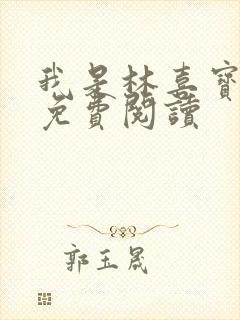 我是林喜寶
免費閱讀
郭玉晟